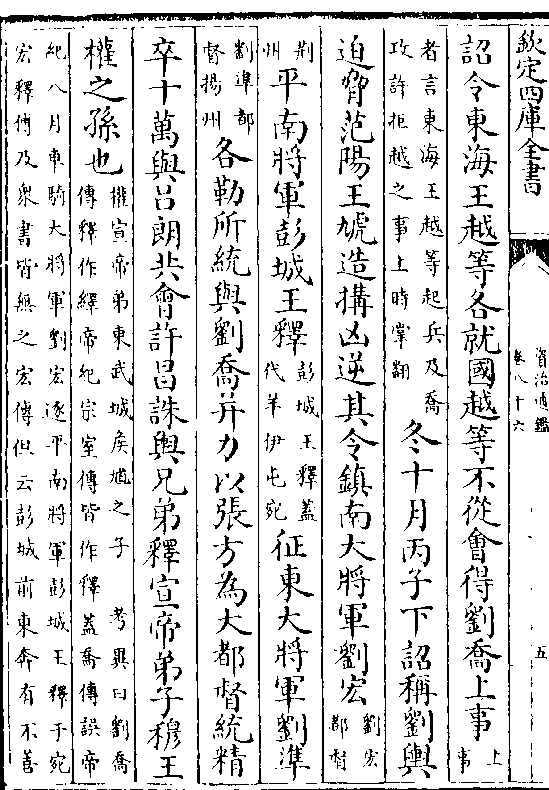 欽定四庫全書
資治通鑑
卷八十六
五
詔令東海王越等各就國越等不從會得劉喬上事
上
事
者言東海王越等起兵及喬
攻許拒越之事上時掌翻
冬十月丙子下詔稱劉輿
迫脅范陽王虓造搆凶逆其令鎮南大將軍劉宏
劉宏
都督
荆
州
平南將軍彭城王釋
彭城王釋蓋
代羊伊屯宛
征東大將軍劉準
劉準都
督揚州
各勒所統與劉喬并力以張方為大都督統精
卒十萬與吕朗共會許昌誅輿兄弟釋宣帝弟子穆王
權之孫也
權宣帝弟東武城侯馗之子 考異曰劉喬
傳釋作繹帝紀宗室傳皆作釋蓋喬傳誤帝
紀八月車騎大將軍劉宏逐平南將軍彭城王釋于宛
宏釋傳及衆書皆無之宏傳但云彭城前東奔有不善